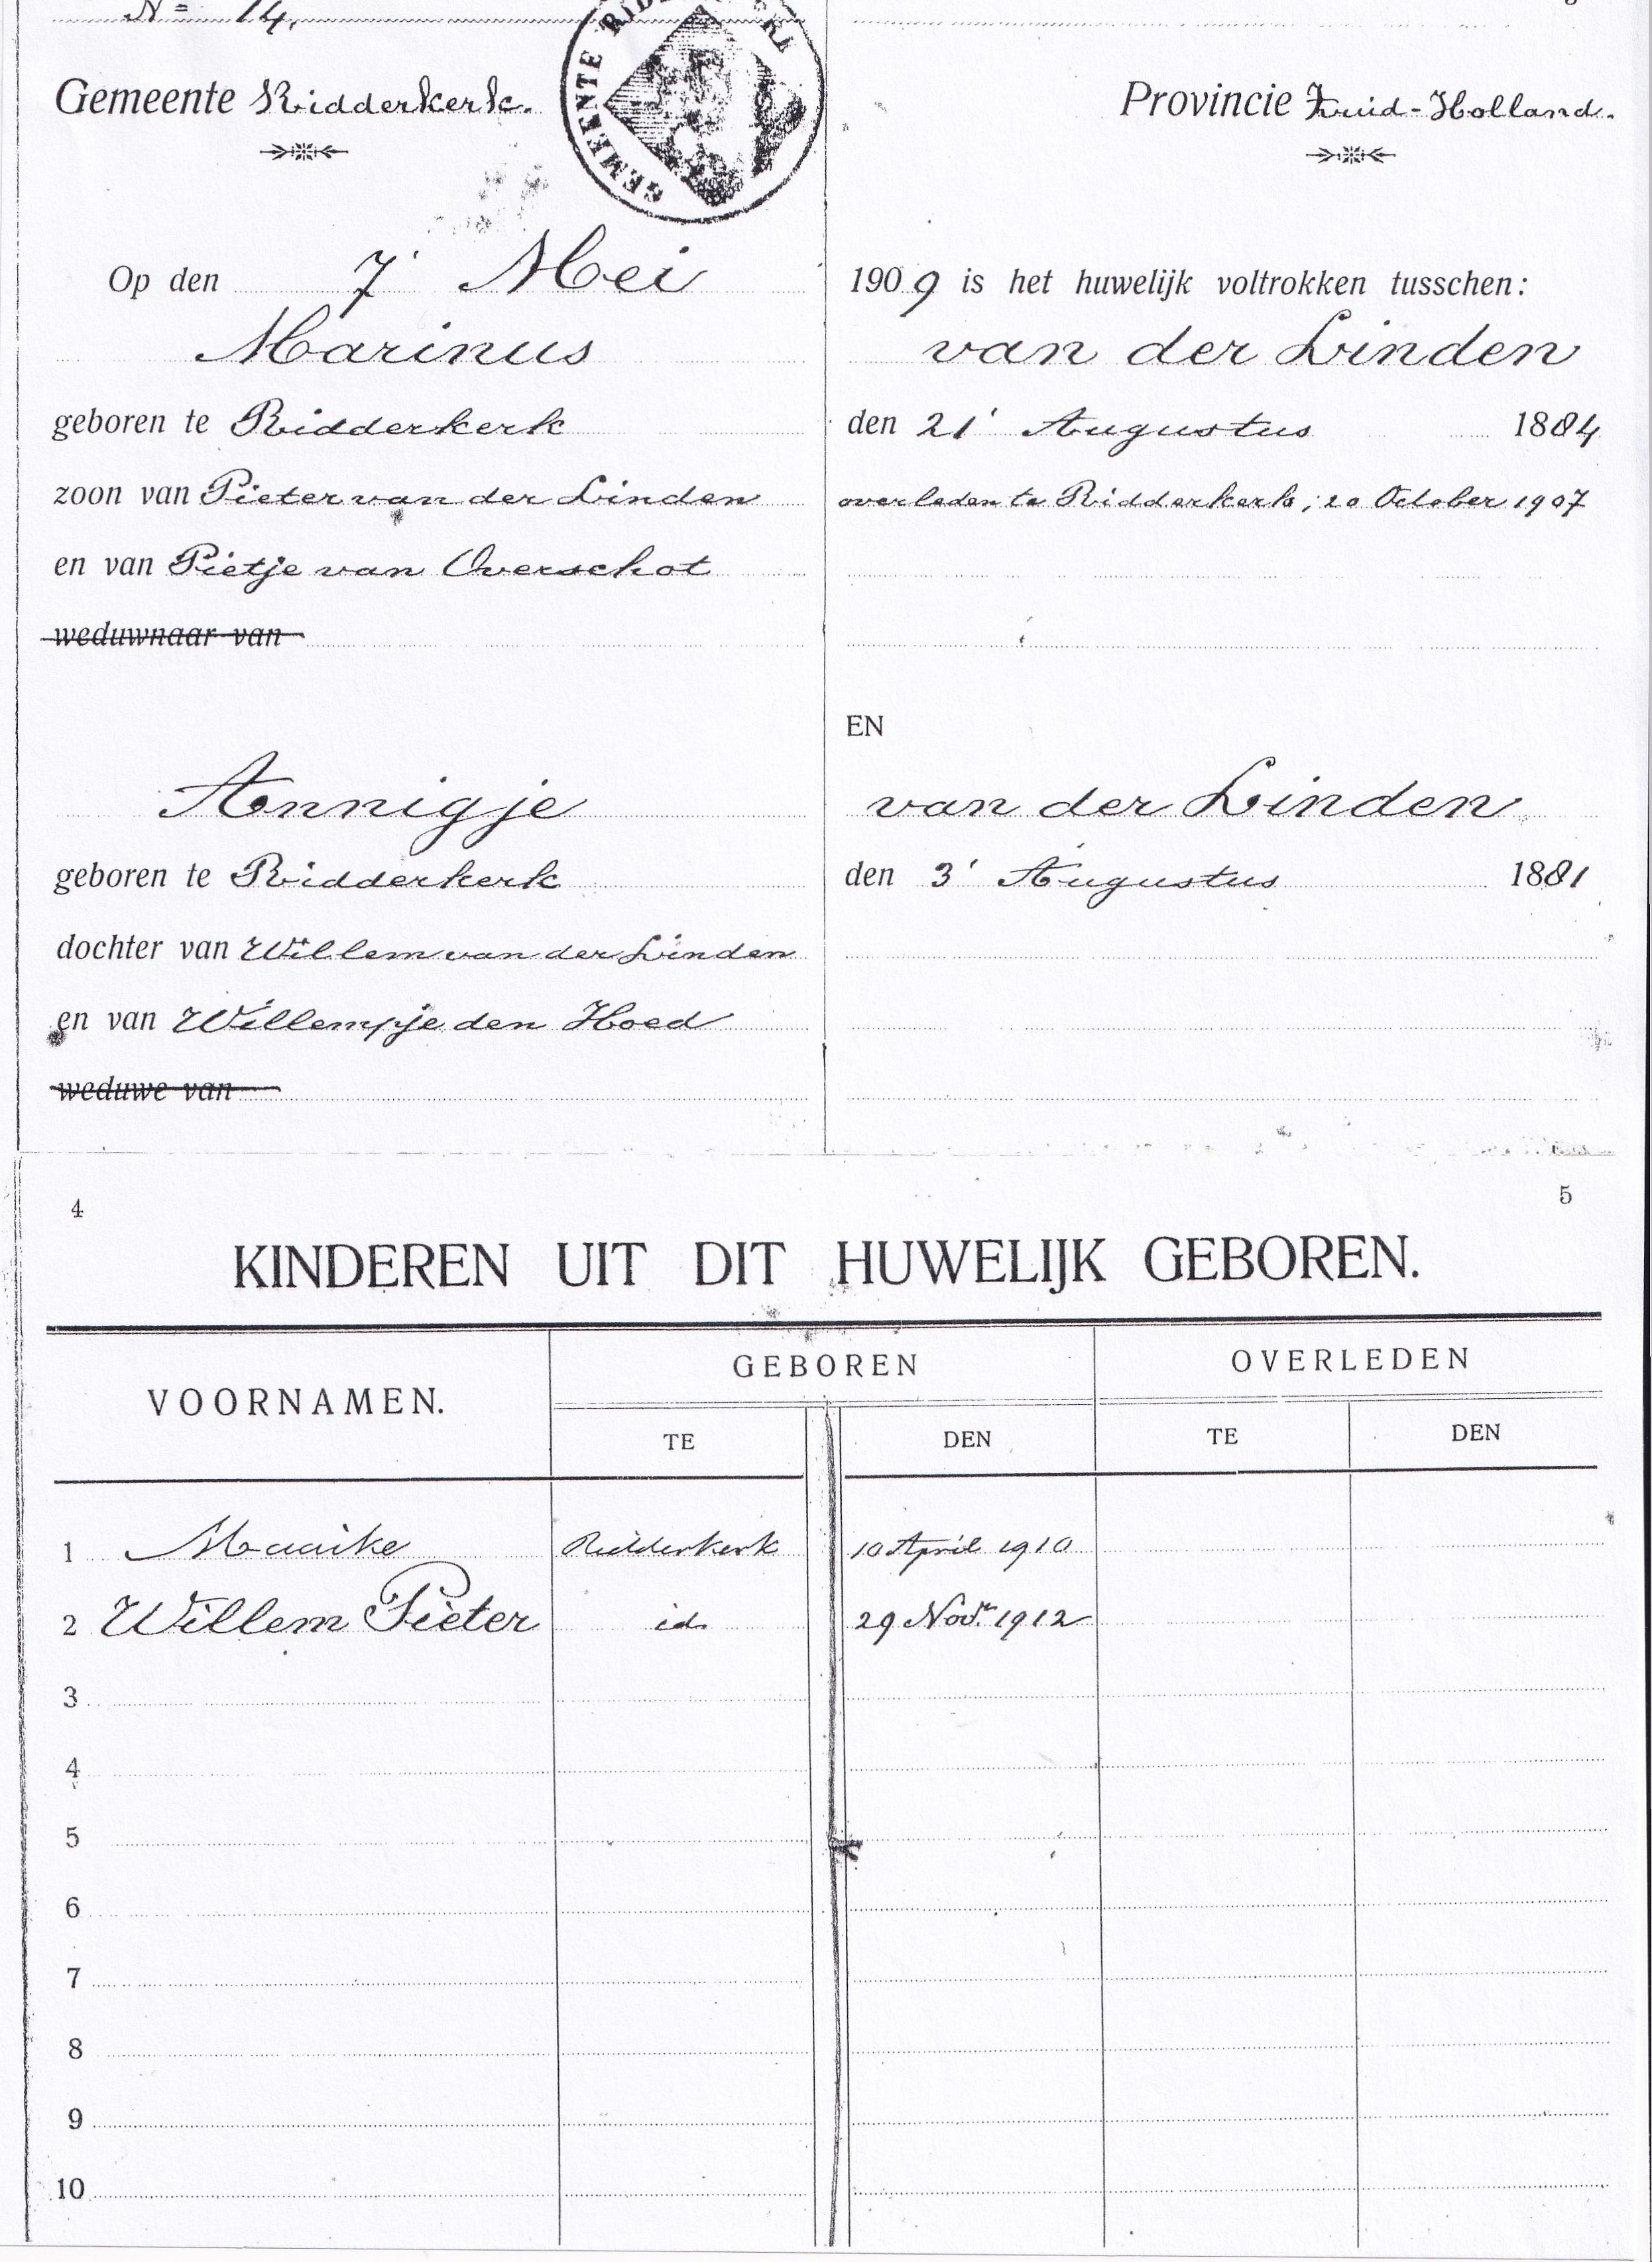 Nº 14.
Gemeente Ridderkerk. Provincie Zuid-Holland.
GEMEENTE
Op den 7' Mei 1909 is het huwelijk voltrokken tusschen:
Marinus van der Linden
geboren te Ridderkerk den 21' Augustus 1884
zoon van Pieter van der Linden overleden te Ridderkerk, 20 October 1907
en van Pietje van Overschot
weduwnaar van
EN
Annigje van der Linden
geboren te Ridderkerk den 3' Augustus 1881
dochter van Willem van der Linden
en van Willempje den Hoed
weduwe van
4 5
KINDEREN UIT DIT HUWELIJK GEBOREN.
VOORNAMEN. GEBOREN OVERLEDEN
TE DEN TE DEN
1 Maaike Ridderkerk 10 April 1910
2 Willem Pieter id. 29 Novr. 1912
3
4
5
6
7
8
9
10